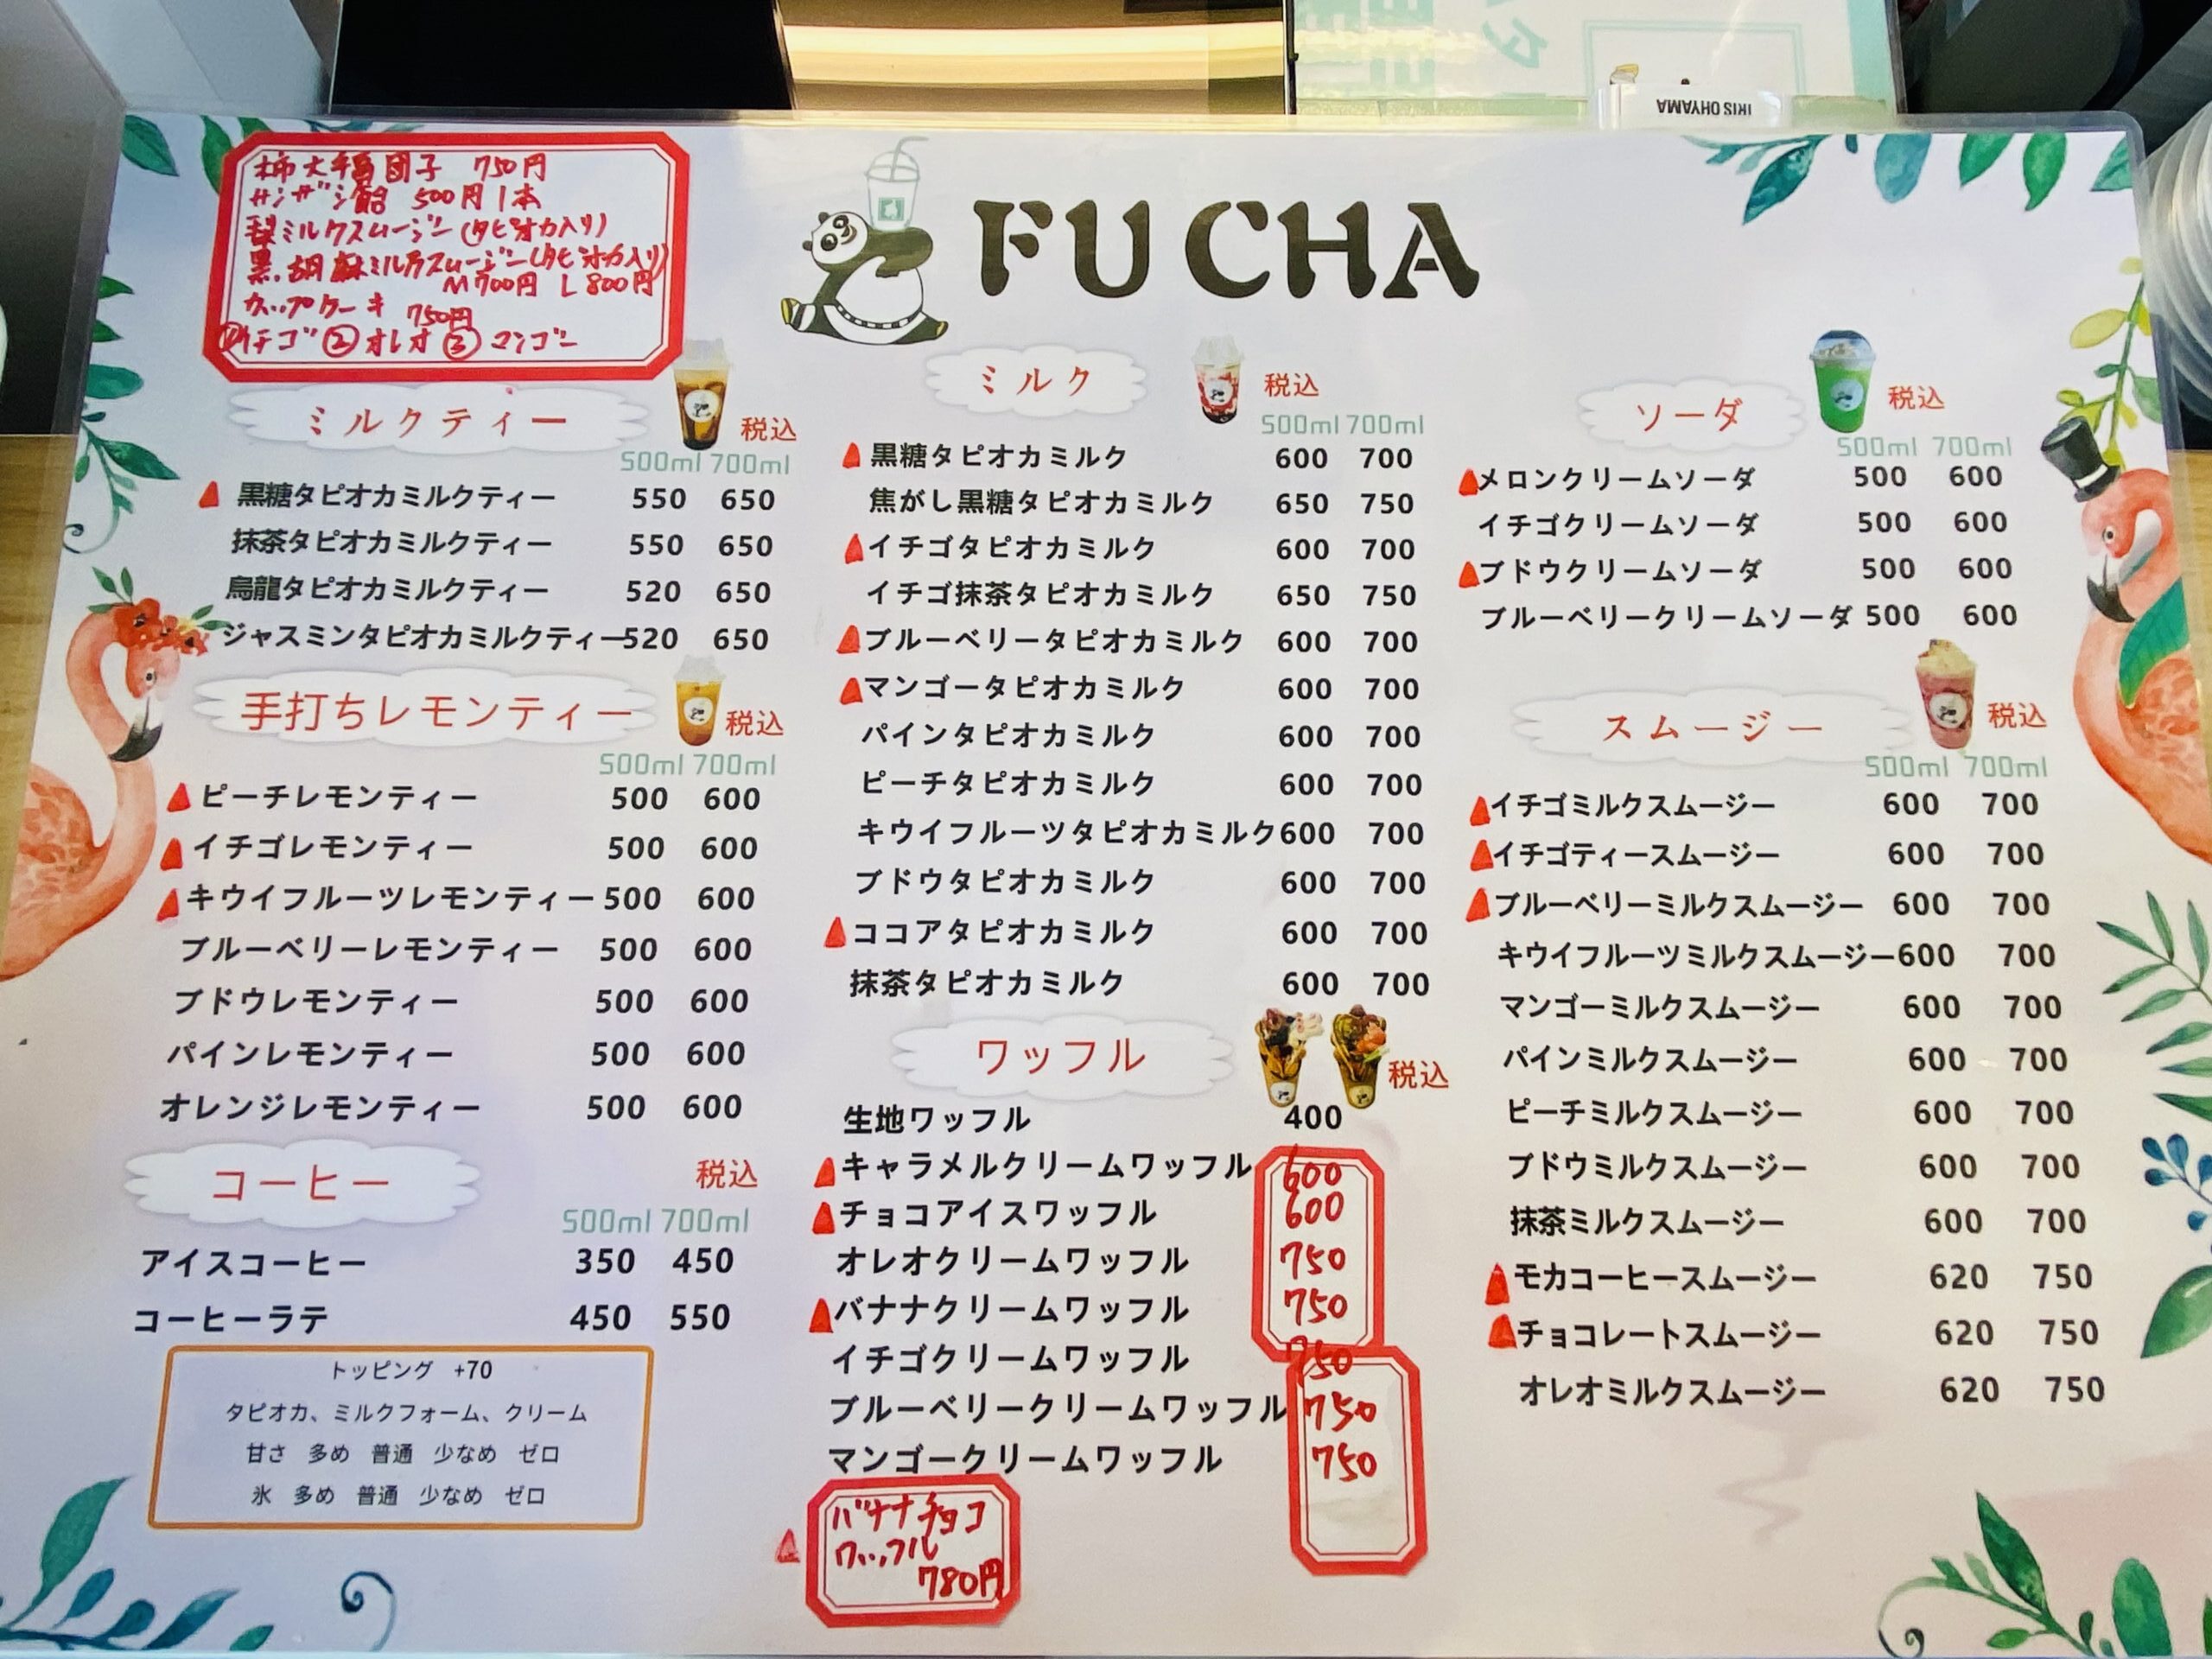 IRIS OHYAMA
柿大福団子 750円
サンザシ飴 500円1本
梨ミルクスムージー(タピオカ入り)
黒胡麻ミルクスムージー(タピオカ入り)
M700円 L800円
カップケーキ 750円
①イチゴ②オレオ③マンゴー
FUCHA
ミルクティー 税込
500ml 700ml
黒糖タピオカミルクティー 550 650
抹茶タピオカミルクティー 550 650
烏龍タピオカミルクティー 520 650
ジャスミンタピオカミルクティー 520 650
手打ちレモンティー 税込
500ml 700ml
ピーチレモンティー 500 600
イチゴレモンティー 500 600
キウイフルーツレモンティー 500 600
ブルーベリーレモンティー 500 600
ブドウレモンティー 500 600
パインレモンティー 500 600
オレンジレモンティー 500 600
コーヒー 税込
500ml 700ml
アイスコーヒー 350 450
コーヒーラテ 450 550
トッピング +70
タピオカ、ミルクフォーム、クリーム
甘さ 多め 普通 少なめ ゼロ
氷 多め 普通 少なめ ゼロ
ミルク 税込
500ml 700ml
黒糖タピオカミルク 600 700
焦がし黒糖タピオカミルク 650 750
イチゴタピオカミルク 600 700
イチゴ抹茶タピオカミルク 650 750
ブルーベリータピオカミルク 600 700
マンゴータピオカミルク 600 700
パインタピオカミルク 600 700
ピーチタピオカミルク 600 700
キウイフルーツタピオカミルク 600 700
ブドウタピオカミルク 600 700
ココアタピオカミルク 600 700
抹茶タピオカミルク 600 700
ワッフル 税込
生地ワッフル 400
キャラメルクリームワッフル 600
チョコアイスワッフル 600
オレオクリームワッフル 750
バナナクリームワッフル 750
イチゴクリームワッフル 750
ブルーベリークリームワッフル 750
マンゴークリームワッフル 750
バナナチョコ
ワッフル
780円
ソーダ 税込
500ml 700ml
メロンクリームソーダ 500 600
イチゴクリームソーダ 500 600
ブドウクリームソーダ 500 600
ブルーベリークリームソーダ 500 600
スムージー 税込
500ml 700ml
イチゴミルクスムージー 600 700
イチゴティースムージー 600 700
ブルーベリーミルクスムージー 600 700
キウイフルーツミルクスムージー 600 700
マンゴーミルクスムージー 600 700
パインミルクスムージー 600 700
ピーチミルクスムージー 600 700
ブドウミルクスムージー 600 700
抹茶ミルクスムージー 600 700
モカコーヒースムージー 620 750
チョコレートスムージー 620 750
オレオミルクスムージー 620 750